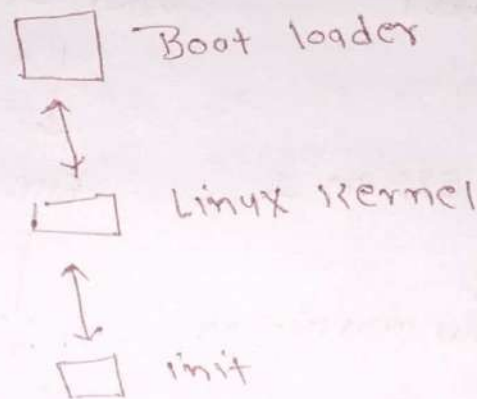 Boot loader
Linux Kernel
init